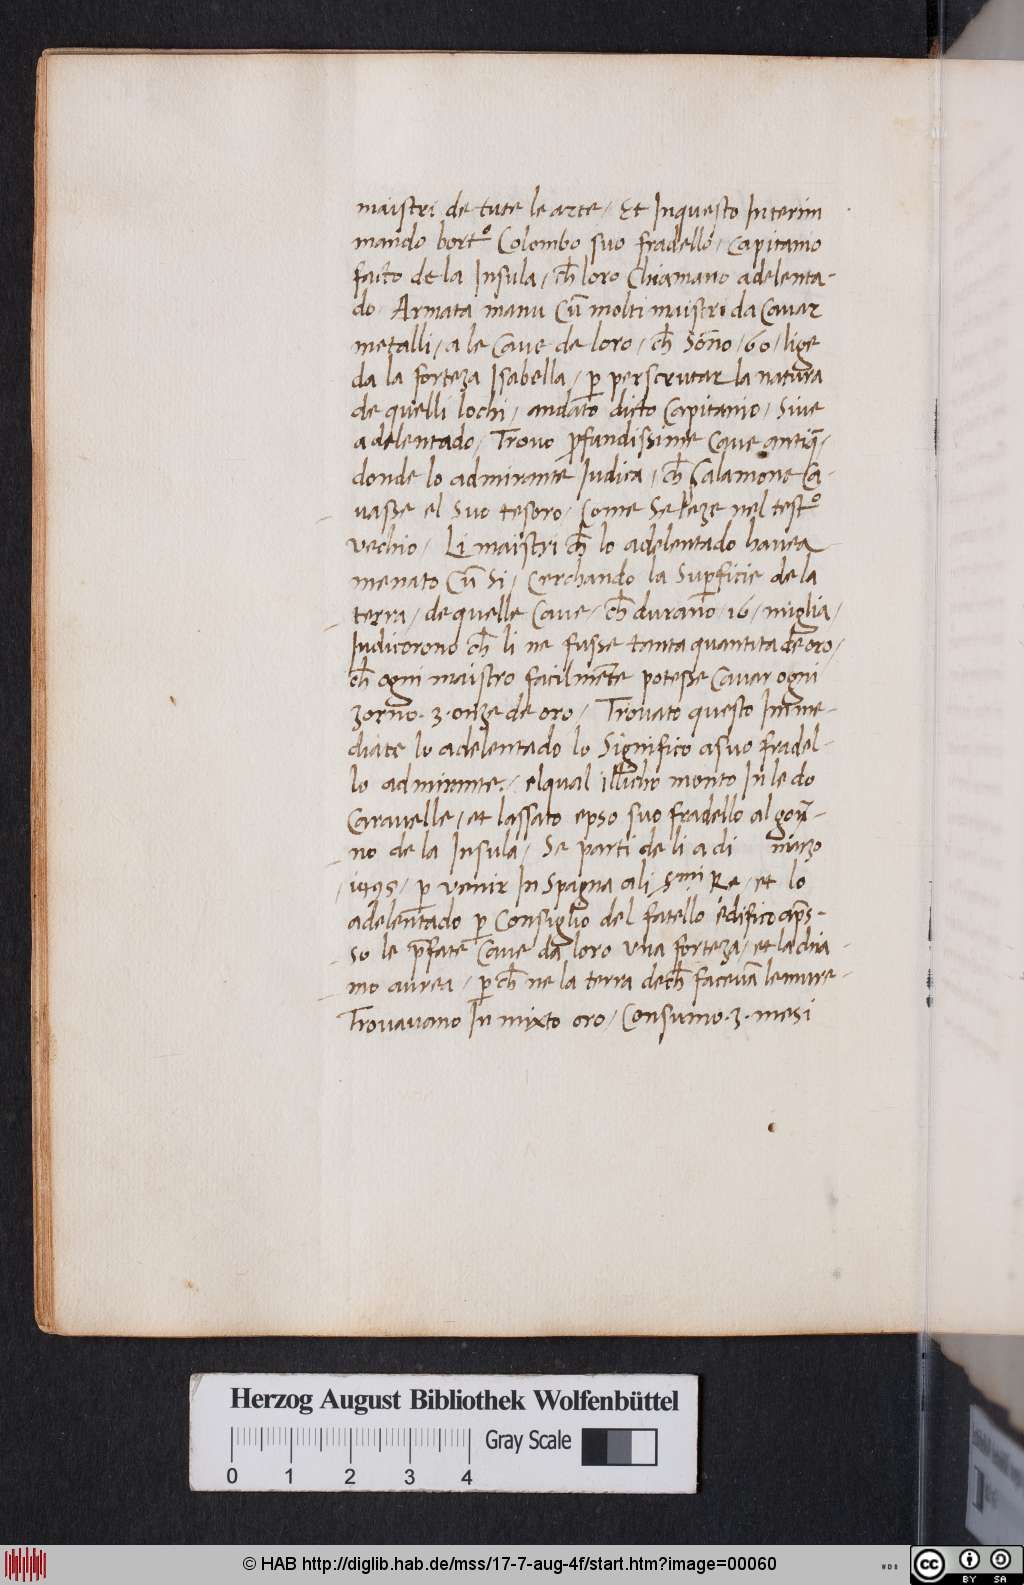 maistri de tute le arte / Et Inquesto Interim
mando bort.º Colombo suo fradello / Capitanio
facto de la Insula / ch̄ loro Chiamano adelenta-
do / Armata manu Cū molti mistri da Cavar
metalli / a le Cave de loro / ch̄ sōno / 60 / lige
da la forteza Isabella / p̱ perscrutar la natura
de quelli lochi / andato dicto Capitanio / Sive
adelentado / Trovo p̱fundissime Cave antiq̄ /
donde lo admirante Iudica / ch̄ Salamone Ca-
vasse el suo tesoro / Come Se leze nel test.º
vechio / Li maistri ch̄ lo adelentado havea
menato Cū Si / Cerchando la Sup̱ficie de la
terra / de quelle Cave / ch̄ durano / 16 / miglia /
Iudicorono ch̄ li ne fusse tanta quantita de oro /
ch̄ ogni maistro facilmēte potesse Cavar ogni
zorno · 3 · onze de oro / Trovato questo Imme-
diate lo adelentado lo Significo a suo fradel-
lo admirante / elqual illicho monto In le do
Caravelle / et lassato epso suo fradello al gov̄-
no de la Insula / Se parti de li a di marzo
/ 1495 / p̱ venir In Spagna ali Smi Re / et lo
adelentado p̱ Consiglio del fatello edifico ap̄s-
so le p̄fate Cave da loro una forteza / et la chia-
mo aurea / p̱ch̄ ne la terra dech̄ facevā le mure
Trovavano In mixto oro / Consumo · 3 · mesi
Herzog August Bibliothek Wolfenbüttel
Gray Scale
0 1 2 3 4
© HAB http://diglib.hab.de/mss/17-7-aug-4f/start.htm?image=00060
WDB
cc BY SA